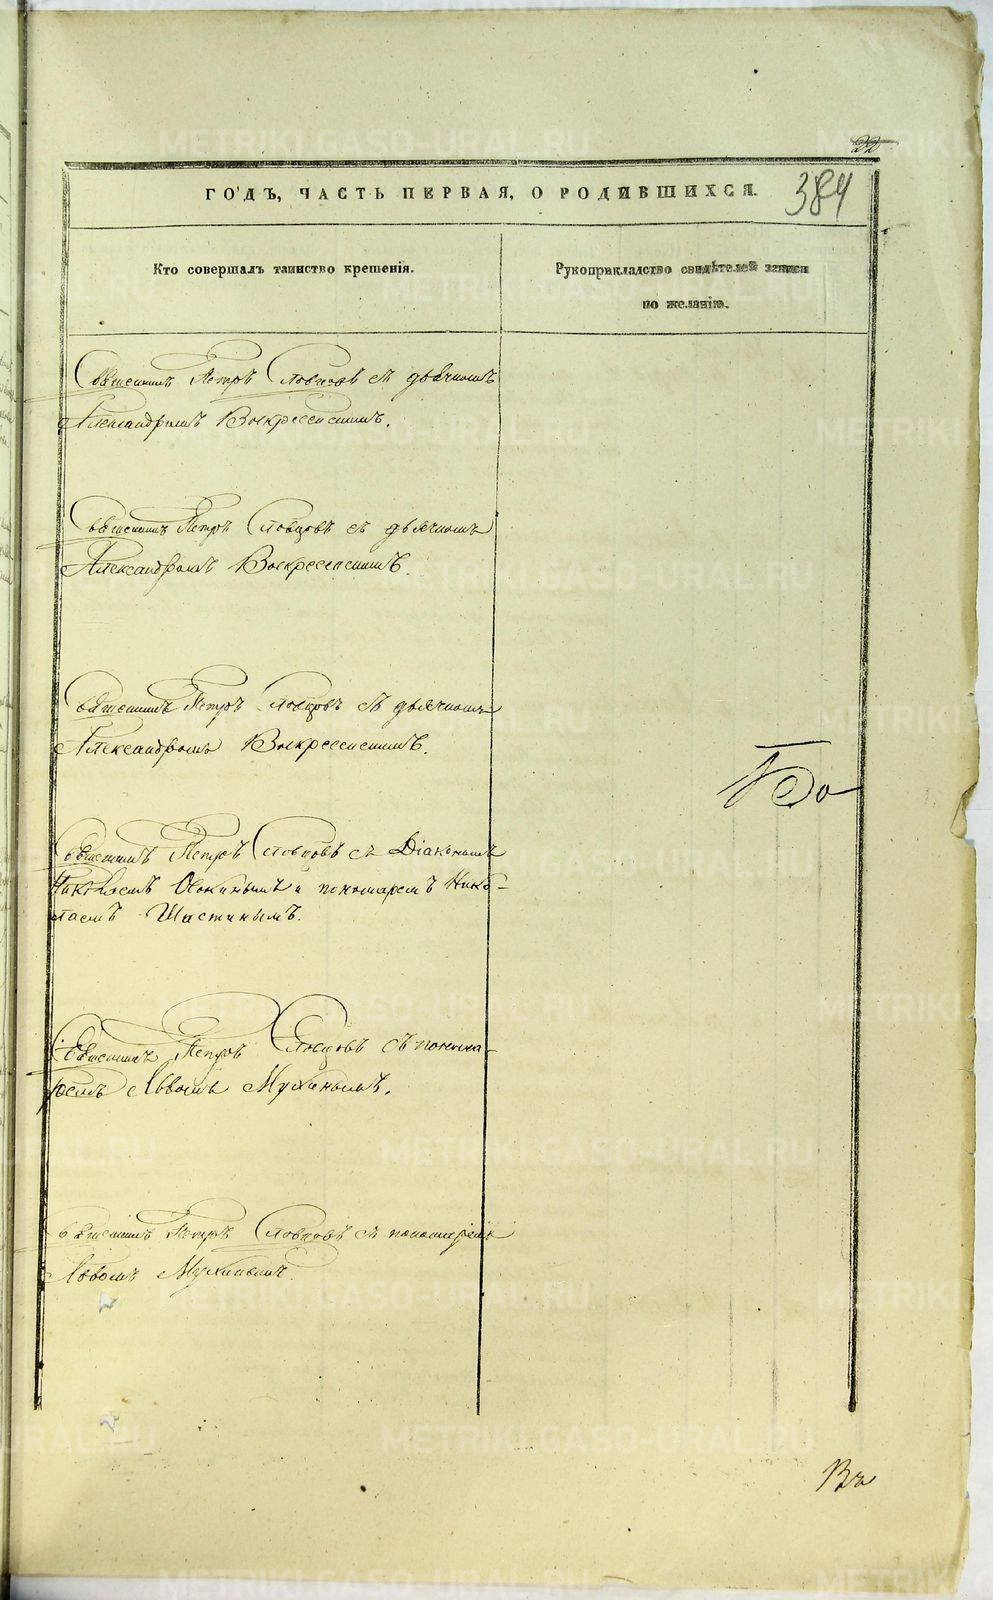 22
384
ГОДЪ, ЧАСТЬ ПЕРВАЯ, О РОДИВШИХСЯ.
Кто совершалъ таинство крещенія.
Рукоприкладство свидѣтелей записи
по желанію.
Священникъ Петръ Словцовъ съ дьячкомъ
Александромъ Воскресенскимъ.
Священникъ Петръ Словцовъ съ дьячкомъ
Александромъ Воскресенскимъ.
Священникъ Петръ Словцовъ съ дьячкомъ
Александромъ Воскресенскимъ.
Священникъ Петръ Словцовъ съ Діакономъ
Николаемъ и пономаремъ Нико-
лаемъ Шастинымъ.
Священникъ Петръ Словцовъ съ понома-
ремъ Львомъ Мухинымъ.
Священникъ Петръ Словцовъ съ пономаремъ
Львомъ Мухинымъ.
Въ
METRIKI.GASO-URAL.RU